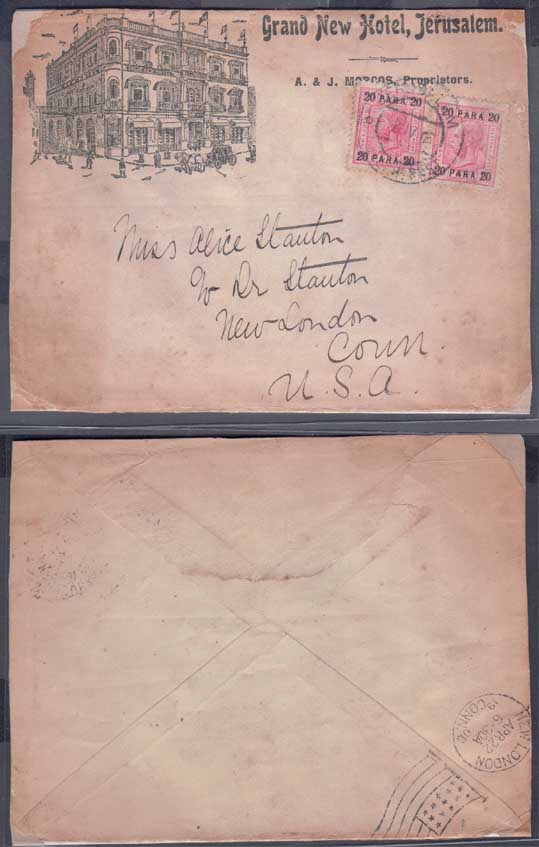 Grand New Hotel, Jerusalem.
A. & J. MORCOS, Proprietors.
20 PARA 20
20 PARA 20
20 PARA 20
20 PARA 20
Miss Alice Stanton
c/o Dr Stanton
New London
Conn.
U.S.A.
NEW LONDON
APR 22
6-30A
CONN.